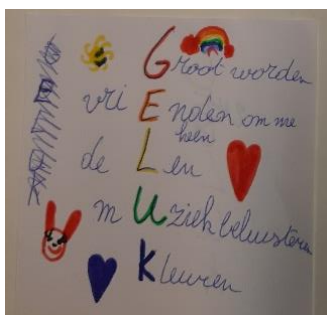 Groot worden
vriEnden om me
heen
deLen
mUziek beluisteren
Kleuren